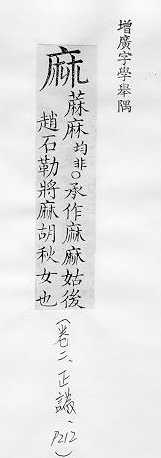 增廣字學舉隅
麻
蔴麻均非○承作麻麻姑後
趙石勒將麻胡秋女也
(卷二、正譌、P212)